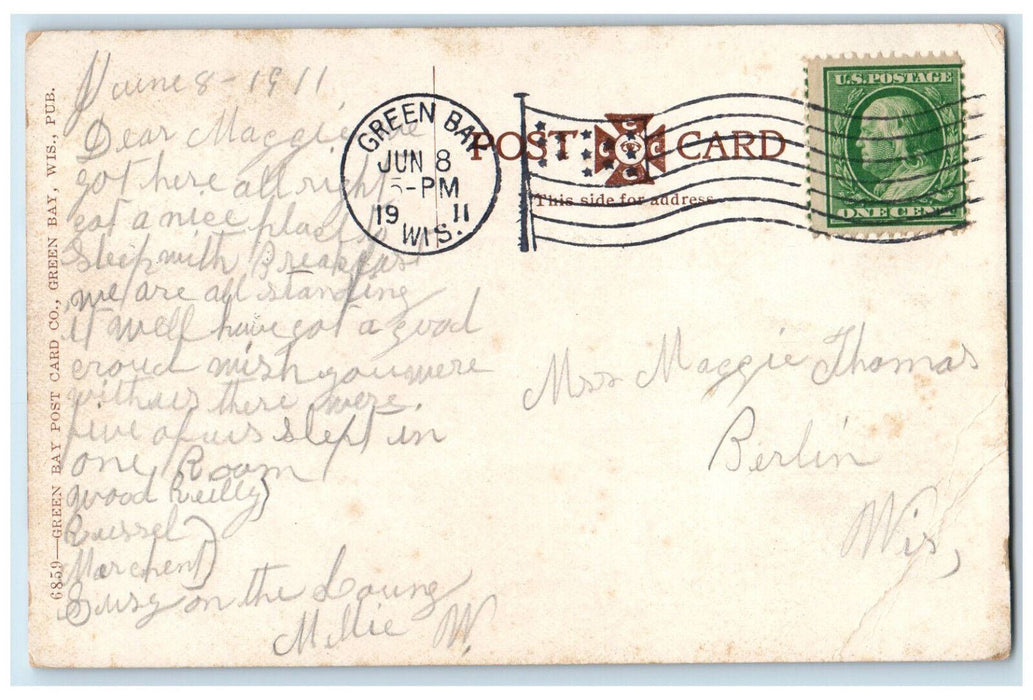 June 8 - 1911
Dear Maggie, we
got here all right
got a nice place to
Sleep with Breakfast
we are all standing
it well have got a good
croud wish you were
with us there were.
five of us slept in
one Room
Wood Reilly
Russel
Marchent
Susy on the Loung
Millie W.
GREEN BAY
JUN 8
5-PM
19 11
WIS.
POST CARD
This side for address
U.S. POSTAGE
ONE CENT
Mrs Maggie Thomas
Berlin
Wis,
6859—GREEN BAY POST CARD CO., GREEN BAY, WIS., PUB.